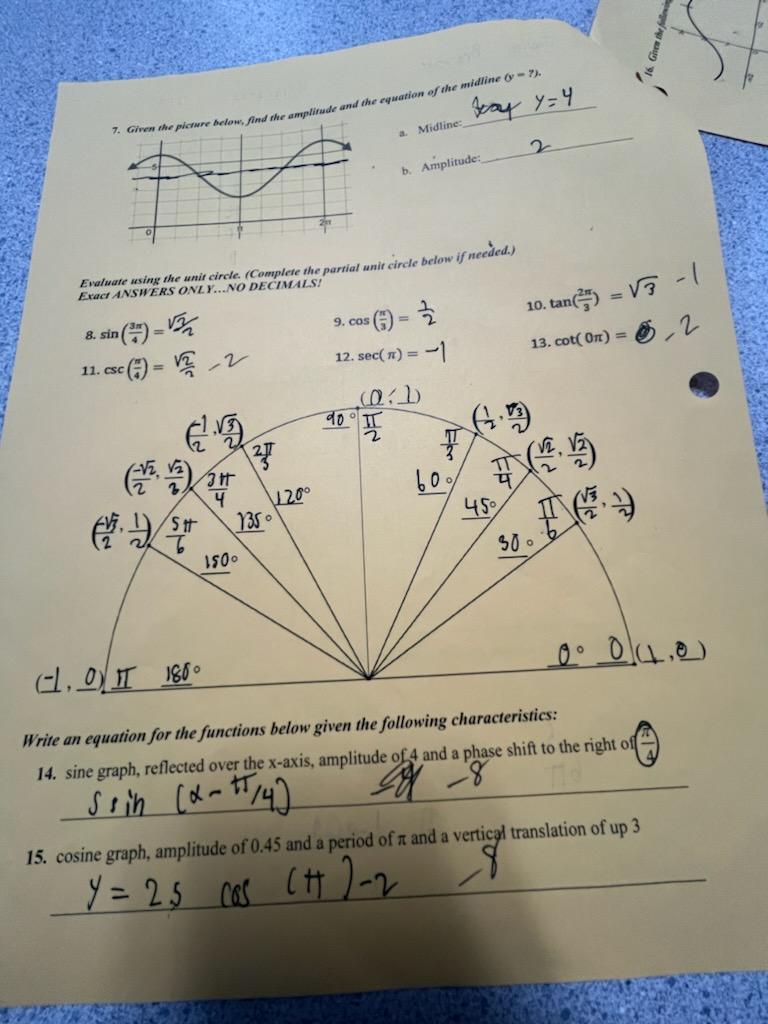 16. Given the following
7. Given the picture below, find the amplitude and the equation of the midline (y = ?).
a. Midline: y=4
b. Amplitude: 2
5
0 π 2π
Evaluate using the unit circle. (Complete the partial unit circle below if needed.)
Exact ANSWERS ONLY...NO DECIMALS!
8. sin(3π/4) = √2/2
9. cos(π/3) = 1/2
10. tan(2π/3) = √3 -1
11. csc(π/4) = √2/2 -2
12. sec(π) = -1
13. cot(0π) = 0 -2
(0, 1)
90° π/2
(-1/2, √3/2) 2π/3 120°
π/3 (1/2, √3/2) 60°
(-√2/2, √2/2) 3π/4 135°
π/4 (√2/2, √2/2) 45°
(-√3/2, 1/2) 5π/6 150°
π/6 (√3/2, 1/2) 30°
(-1, 0) π 180°
0° 0 (1, 0)
Write an equation for the functions below given the following characteristics:
14. sine graph, reflected over the x-axis, amplitude of 4 and a phase shift to the right of π/4
sin (x-π/4) -8
15. cosine graph, amplitude of 0.45 and a period of π and a vertical translation of up 3
y = 2.5 cos (π)-2 -8